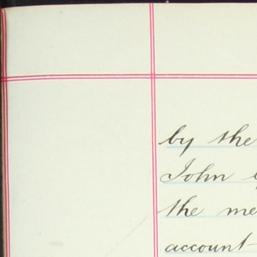 by the
John
the
account